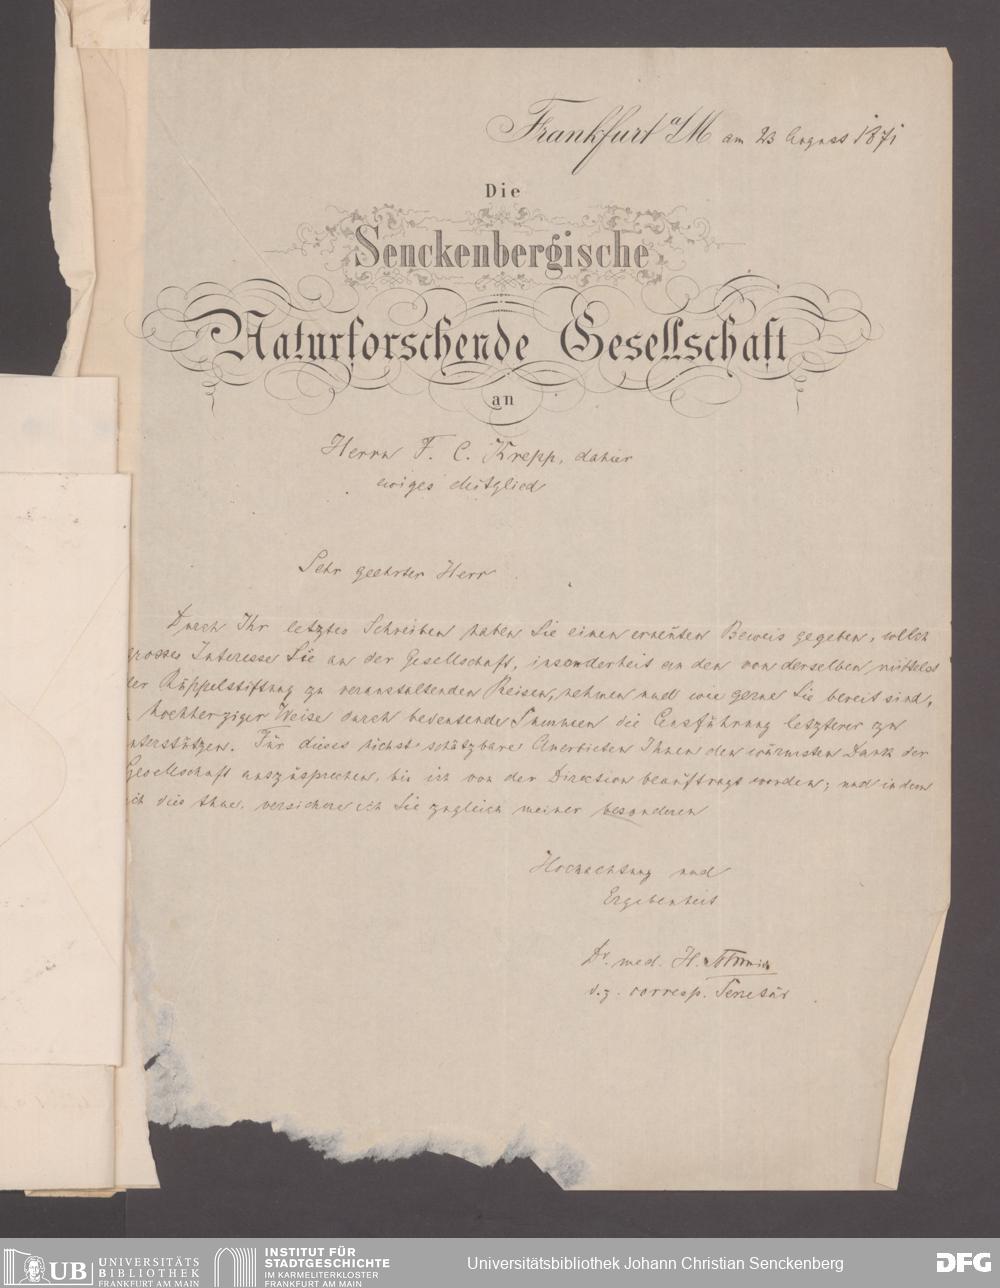 Frankfurt a/M am 23 August 1871
Die
Senckenbergische
Naturforschende Gesellschaft
an
Herrn F. C. Krepp, dahier
ewiges Mitglied
Sehr geehrter Herr
Durch Ihr letztes Schreiben haben Sie einen erneuten Beweis gegeben, welch
grosses Interesse Sie an der Gesellschaft, insonderheit an den von derselben, mittelst
der Rüppelstiftung zu veranstaltenden Reisen, nehmen und wie gerne Sie bereit sind,
hochherziger Weise durch bedeutende Summen die Ausführung letzterer zu
unterstützen. Für dieses höchst schätzbare Anerbieten Ihnen den wärmsten Dank der
Gesellschaft auszusprechen, bin ich von der Direction beauftragt worden; und indem
ich dies thue, versichere ich Sie zugleich meiner besonderen
Hochachtung und
Ergebenheit
Dr. med. H.
d. z. corresp. Secretär
UB UNIVERSITÄTS
BIBLIOTHEK
FRANKFURT AM MAIN
INSTITUT FÜR
STADTGESCHICHTE
IM KARMELITERKLOSTER
FRANKFURT AM MAIN
Universitätsbibliothek Johann Christian Senckenberg
DFG